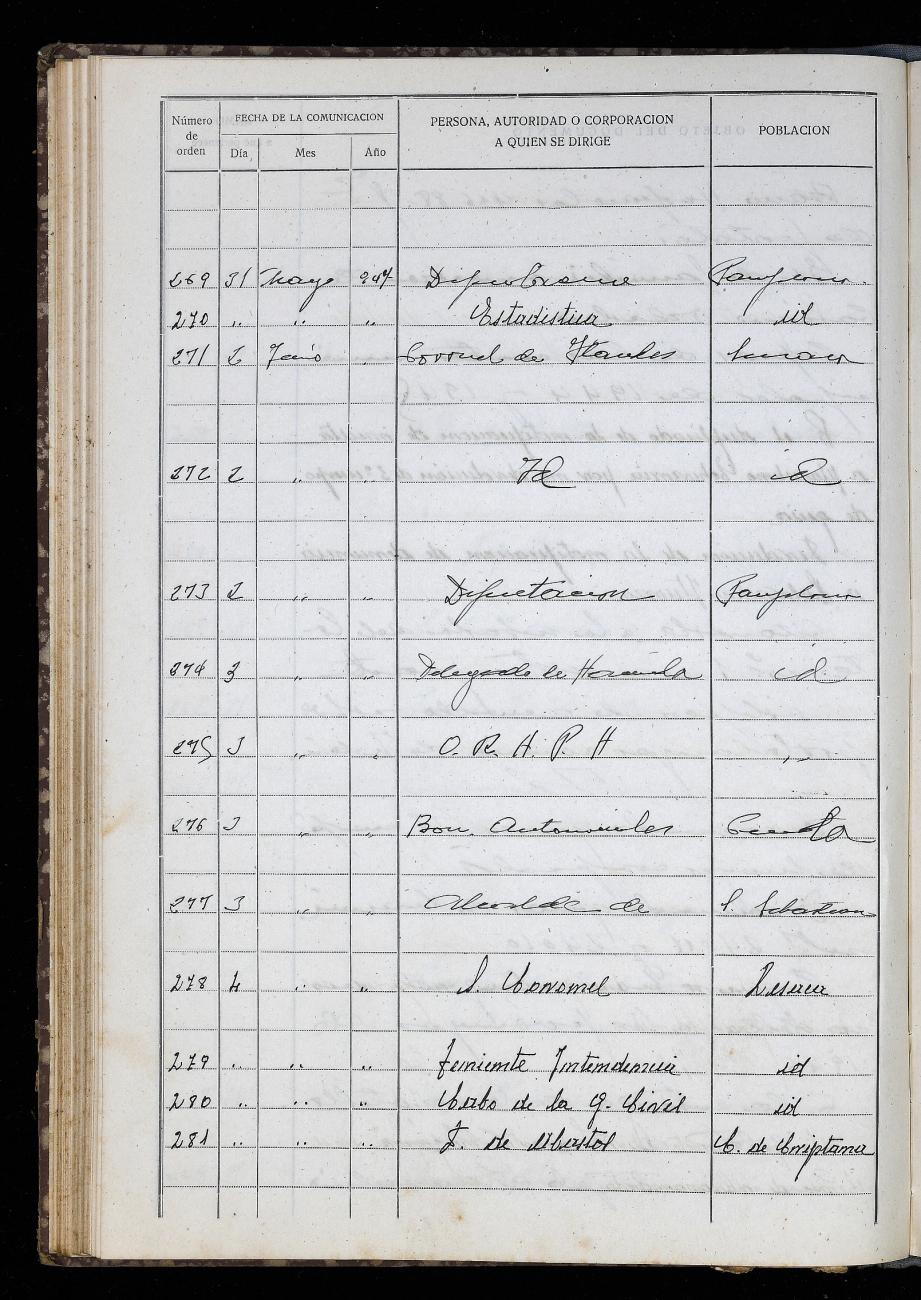 Número de orden
FECHA DE LA COMUNICACION
Día Mes Año
PERSONA, AUTORIDAD O CORPORACION A QUIEN SE DIRIGE
POBLACION
269 31 Mayo 947 Pamplona.
270 " " " Estadistica id
271 2 Junio " Coronel de
272 2 " " Id id
273 2 " " Diputacion Pamplona
274 3 " " Delegado de Hacienda id
275 3 " " O. R. A. P. H "
276 3 " " Bon. Automoviles
277 3 " " Alcalde de S. Sebastian
278 4 " " S. Coronel Lesaca
279 " " " Teniente Intendencia id
280 " " " Cabo de la G. Civil id
281 " " " F. de Abastos C. de Criptana